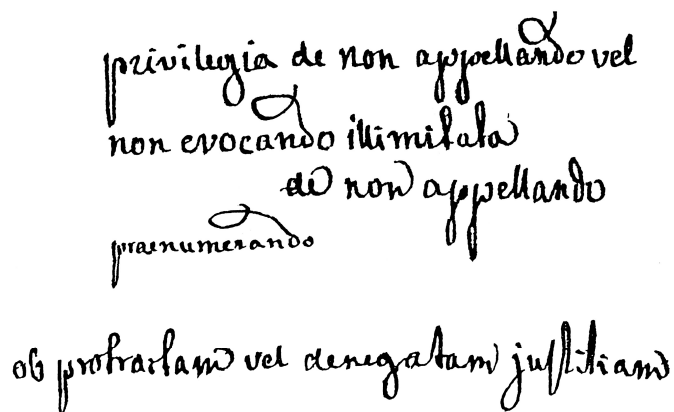 privilegia de non appellando vel
non evocando illimitata
de non appellando
praenumerando
ob protractam vel denegatam justitiam